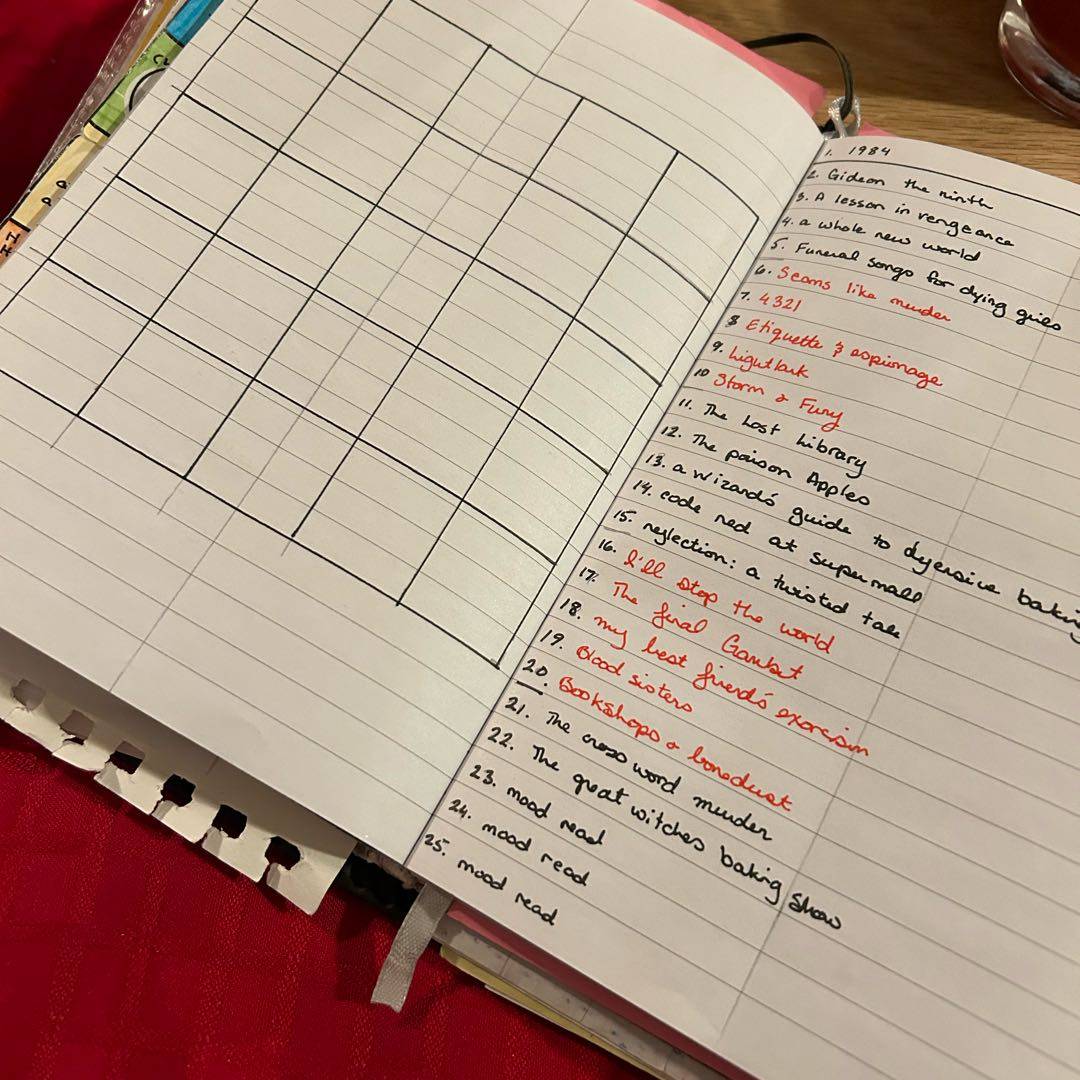 1. 1984
2. Gideon the ninth
3. A lesson in vengeance
4. a whole new world
5. Funeral songs for dying girls
6. Seams like murder
7. 4321
8 Etiquette & espionage
9. Lightlark
10 Storm & Fury
11. The Lost Library
12. The poison Apples
13. a wizard's guide to defensive baking
14. code red at supermall
15. reflection: a twisted tale
16. I'll stop the world
17. The final Gambit
18. my best friend's exorcism
19. Blood sisters
20. Bookshops & bonedust
21. The cross word murder
22. The great witches baking show
23. mood read
24. mood read
25. mood read